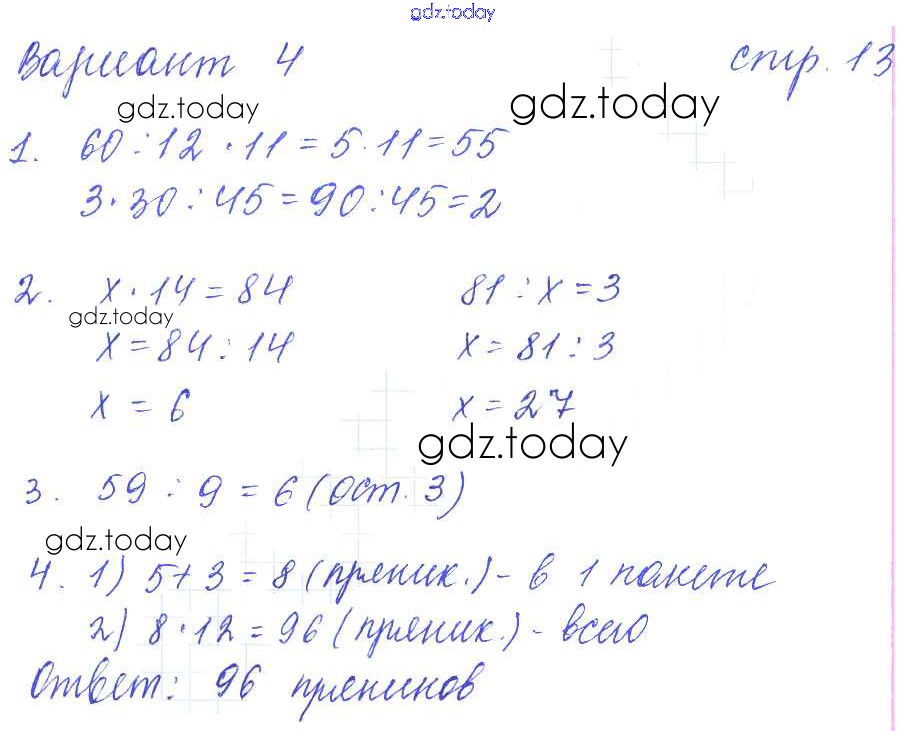 gdz.today
Вариант 4 стр. 13
gdz.today gdz.today
1. 60 : 12 · 11 = 5 · 11 = 55
3 · 30 : 45 = 90 : 45 = 2
2. x · 14 = 84 81 : x = 3
gdz.today
x = 84 : 14 x = 81 : 3
x = 6 x = 27
gdz.today
3. 59 : 9 = 6 (ост. 3)
gdz.today
4. 1) 5 + 3 = 8 (пряник.) - в 1 пакете
2) 8 · 12 = 96 (пряник.) - всего
Ответ: 96 пряников